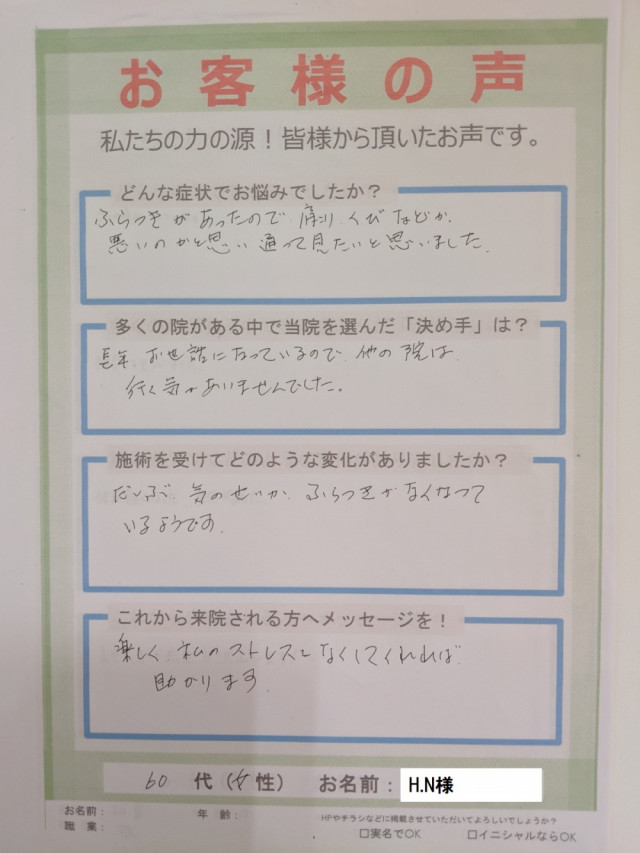 お客様の声
私たちの力の源！皆様から頂いたお声です。
どんな症状でお悩みでしたか？
ふらつきがあったので 肩こり くびなどが、
悪いのかと思い 通って見たいと思いました。
多くの院がある中で当院を選んだ「決め手」は？
長年 お世話になっているので、他の院は、
行く気がありませんでした。
施術を受けてどのような変化がありましたか？
だいぶ 気のせいか、ふらつきがなくなって
いるようです。
これから来院される方へメッセージを！
楽しく、私のストレスをなくしてくれれば
助かります。
60 代（女性） お名前： H.N様
お名前：
年 齢：
HPやチラシなどに掲載させていただいてよろしいでしょうか？
職 業：
□実名でOK □イニシャルならOK